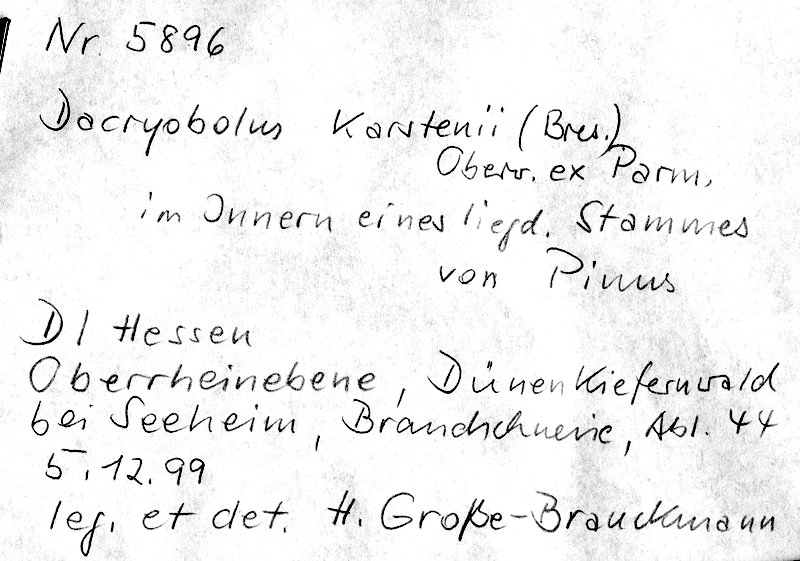 Nr. 5896
Dacryobolus Karstenii (Bres.)
Oberw. ex Parm.
im Innern eines liegd. Stammes
von Pinus
D / Hessen
Oberrheinebene, Dünenkiefernwald
bei Seeheim, Brandschneise, Abl. 44
5.12.99
leg. et det. H. Große-Brauckmann